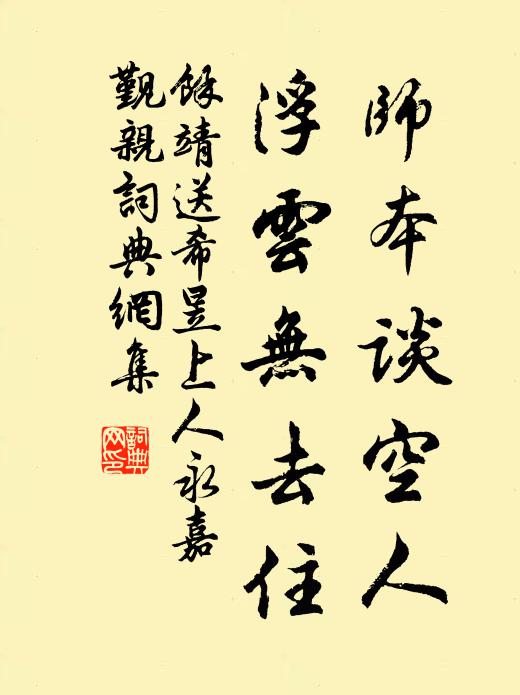 師本談空人
浮雲無去住
餘靖送希昱上人永嘉
覲親詞典網集
詞典
网印